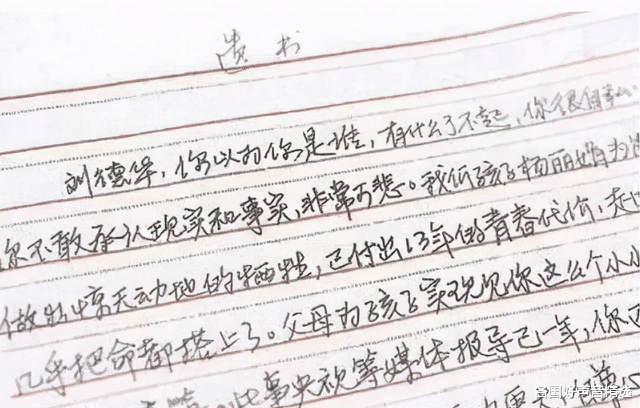 遗书
刘德华,你以为你是谁,有什么了不起,你很自
你不敢承认现实和事实,非常可悲。我们孩子杨丽娟为
做出惊天动地的牺牲,已付出13年的青春代价,
几乎把命都搭上了。父母为孩子实现见你这么个小小
此事央视等媒体报导已一年,你
各国好声音精选